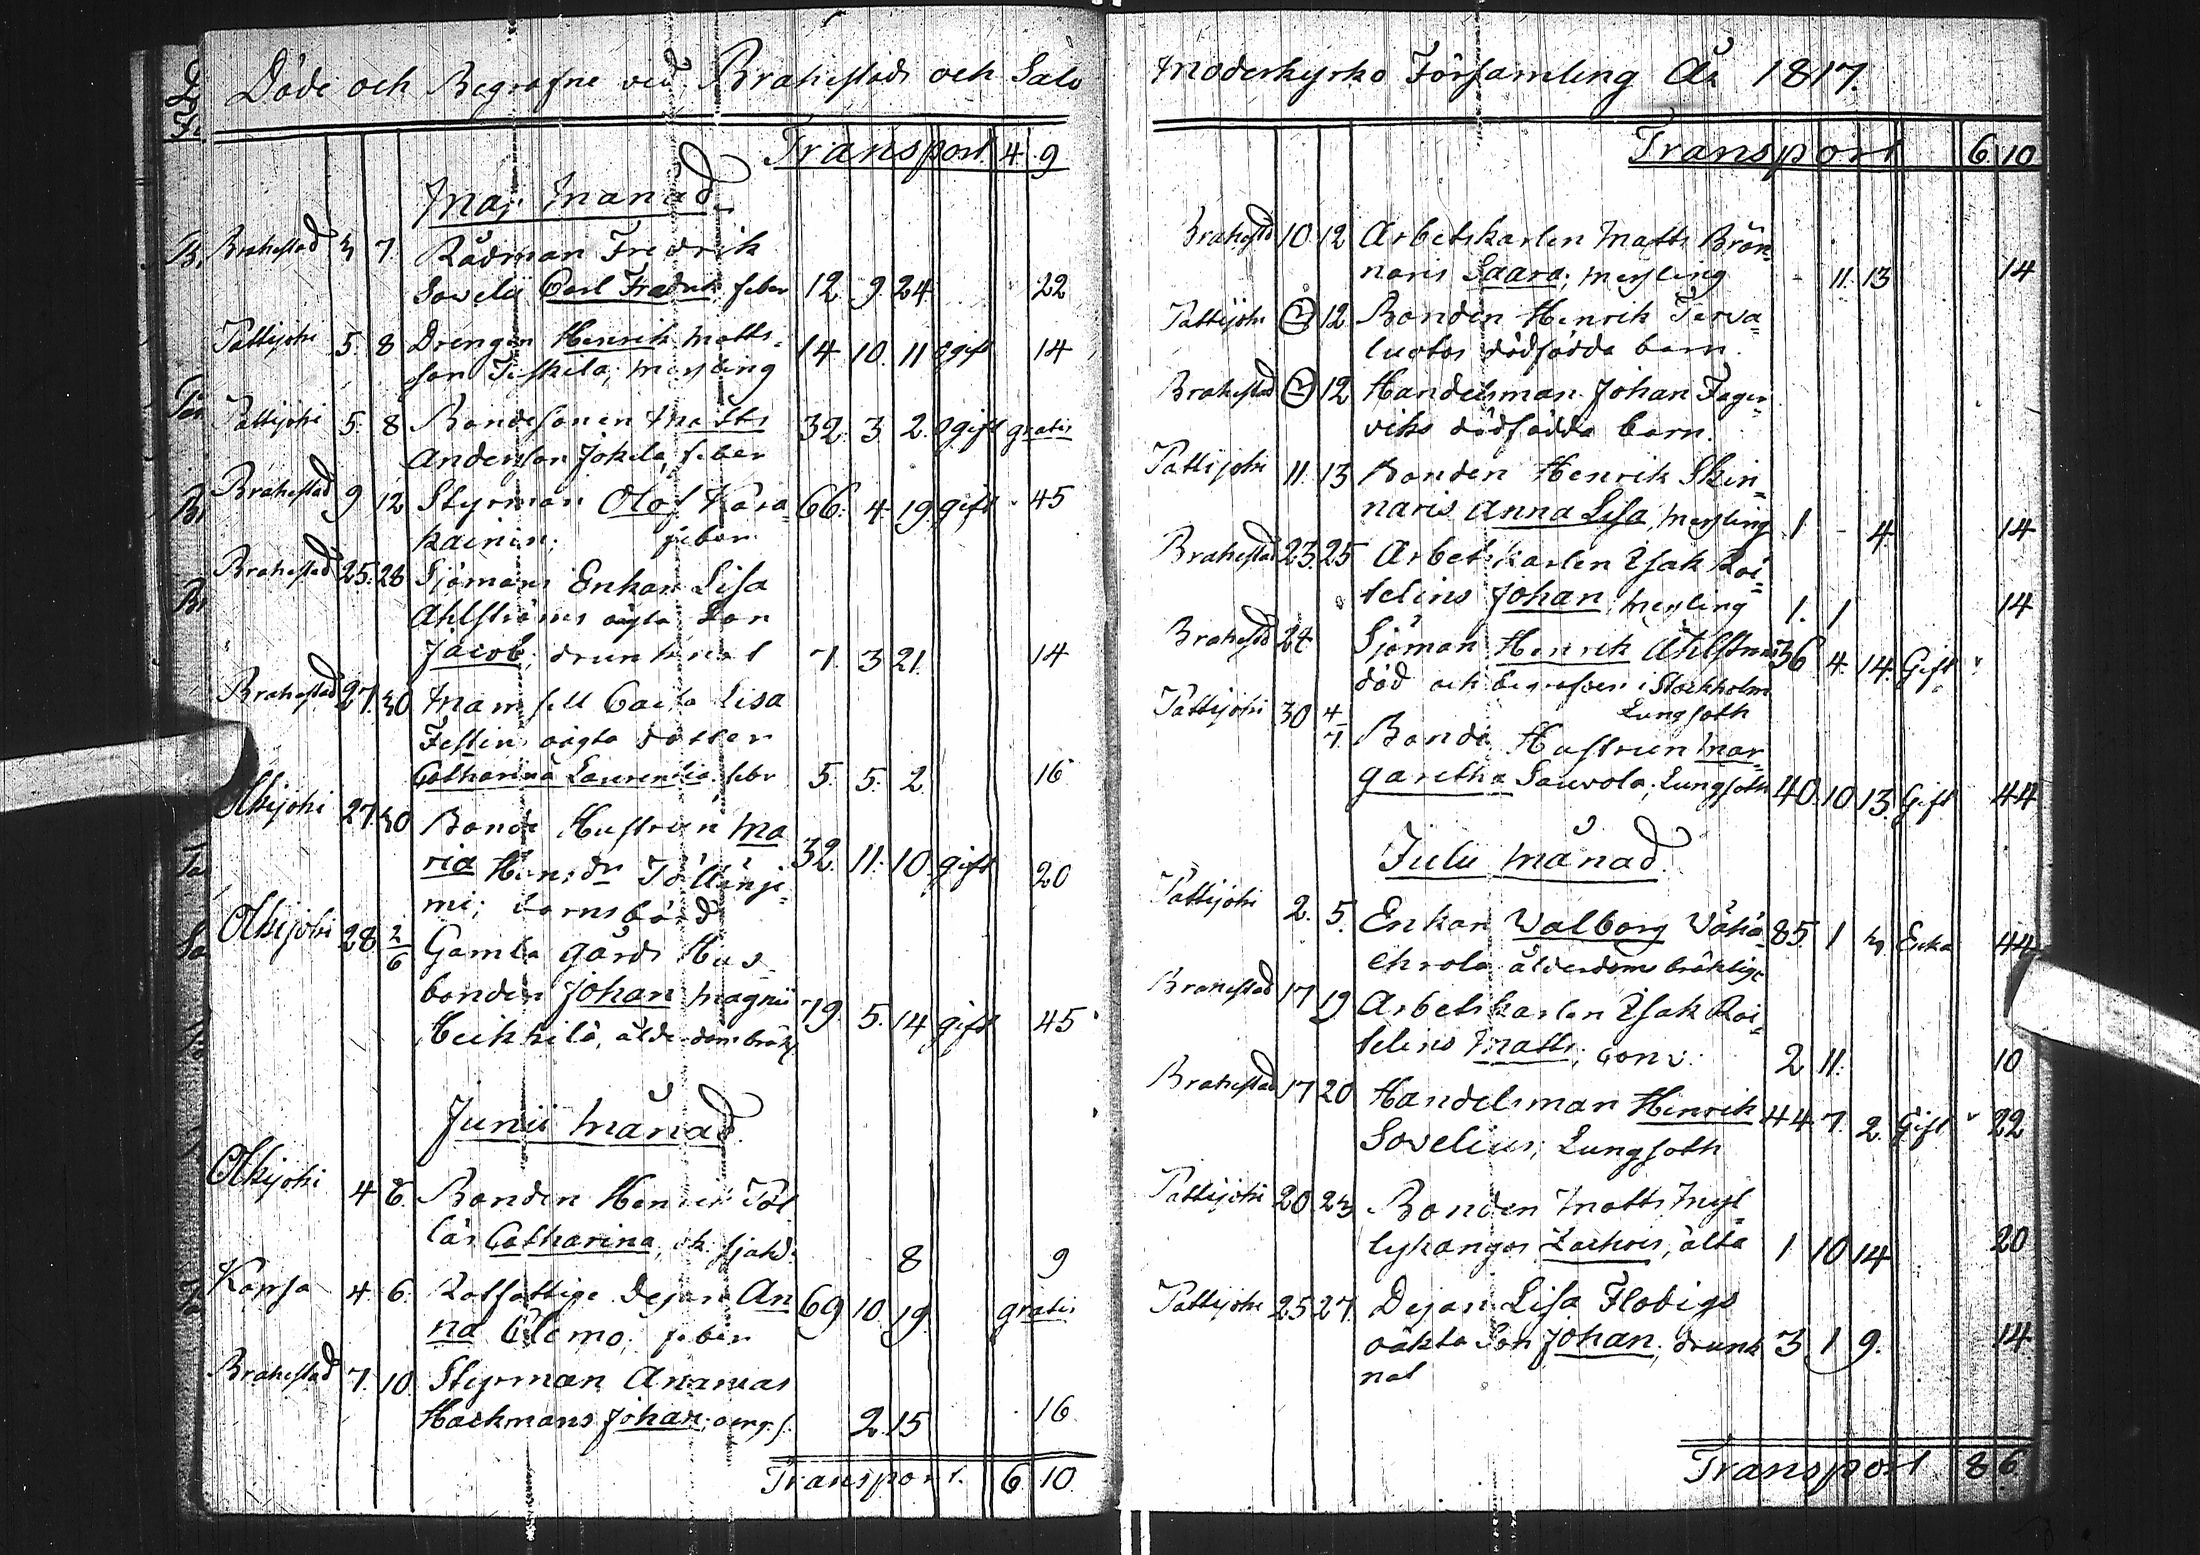 Döde och Begrafne vid Brahestads och Salo
Transport 4 9
Maji Månad
Brahestad 3 7. Rådman Fredrik
Sovelii Carl Fredrik, feber 12. 9. 24 22
Pattijoki 5. 8 Drengen Henrik Matts=
son Tiskila, messling 14. 10. 11 ogift 14
Pattijoki 5. 8 Bondesonen Matts 32. 3. 2. ogift gratis
Andersson Jokela, feber
Brahestad 9 12 Styrman Olof Kara= 66. 4. 19 gift 45
kainen; feber
Brahestad 25. 28 Sjömans Enkan Lisa
Ahlströms oägta Son
Jacob; drunknat 7. 3 21. 14
Brahestad 27. 30 Mamsell Caisa Lisa
Festins oägta dotter
Catharina Laurentia, feber 5. 5. 2. 16
Olkijoki 27. 30 Bonde Hustrun Ma
ria Hens dr Töllinje= 32. 11. 10. gift 20
mi; barnsbörd
Olkijoki 28. 2/6 Gamla gårds Hus=
bonden Johan Magnii
Heikkilä, ålderdomsbräkl 79. 5. 14 gift 45
Junii Månad.
Olkijoki 4 8. Bonden Henrik Pöl
läs Catharina, ok. sjukd. 8 9
Kopsa 4. 6. Rotfattige Dejan An
na Ölemo; feber 69 10 19. gratis
Brahestad 7. 10. Styrman Ananias
Hackmans Johan; 2. 15 16
Transport. 6. 10
Moderkyrko Församling År 1817.
Transport 6 10
Brahestad 10 12 Arbetskarlen Matts Brän=
naris Saara; messling - 11. 13 14
Pattijoki 12 Bonden Henrik Terva=
luotos dödfödda barn.
Brahestad 12 Handelsman Johan Fager=
viks dödfödda barn.
Pattijoki 11. 13 Bonden Henrik Skin=
naris Anna Lisa, messling 1 - 4. 14
Brahestad 23. 25 Arbetskarlen Isak Roi=
selins Johan, messling 1. 1 14
Brahestad 24 Sjöman Henrik Ahlström 36 4. 14. Gift
död och begrafven i Stockholm
Lungsoth
Pattijoki 30 4/7 Bonde Hustrun Mar=
garetha Sauvola, Lungsoth 40. 10 13. Gift 44
Julii Månad.
Pattijoki 2. 5. Enkan Walborg Wähä= 85. 1 3 Enka 44
ehrola ålderdoms bräklighe
Brahestad 17 19 Arbetskarlen Isak Roi=
selins Matts; conv. 2 11. 10
Brahestad 17 20 Handelsman Henrik 44. 7. 2. Gift 22
Sovelius, Lungsoth
Pattijoki 20 23 Bonden Matts Myl=
lykangas Zachris, älta 1 10 14 20
Pattijoki 25 27. Dejan Lisa Flodigs
oäkta Son Johan; drunk 3 1 9. 14
nat
Transport 8 6